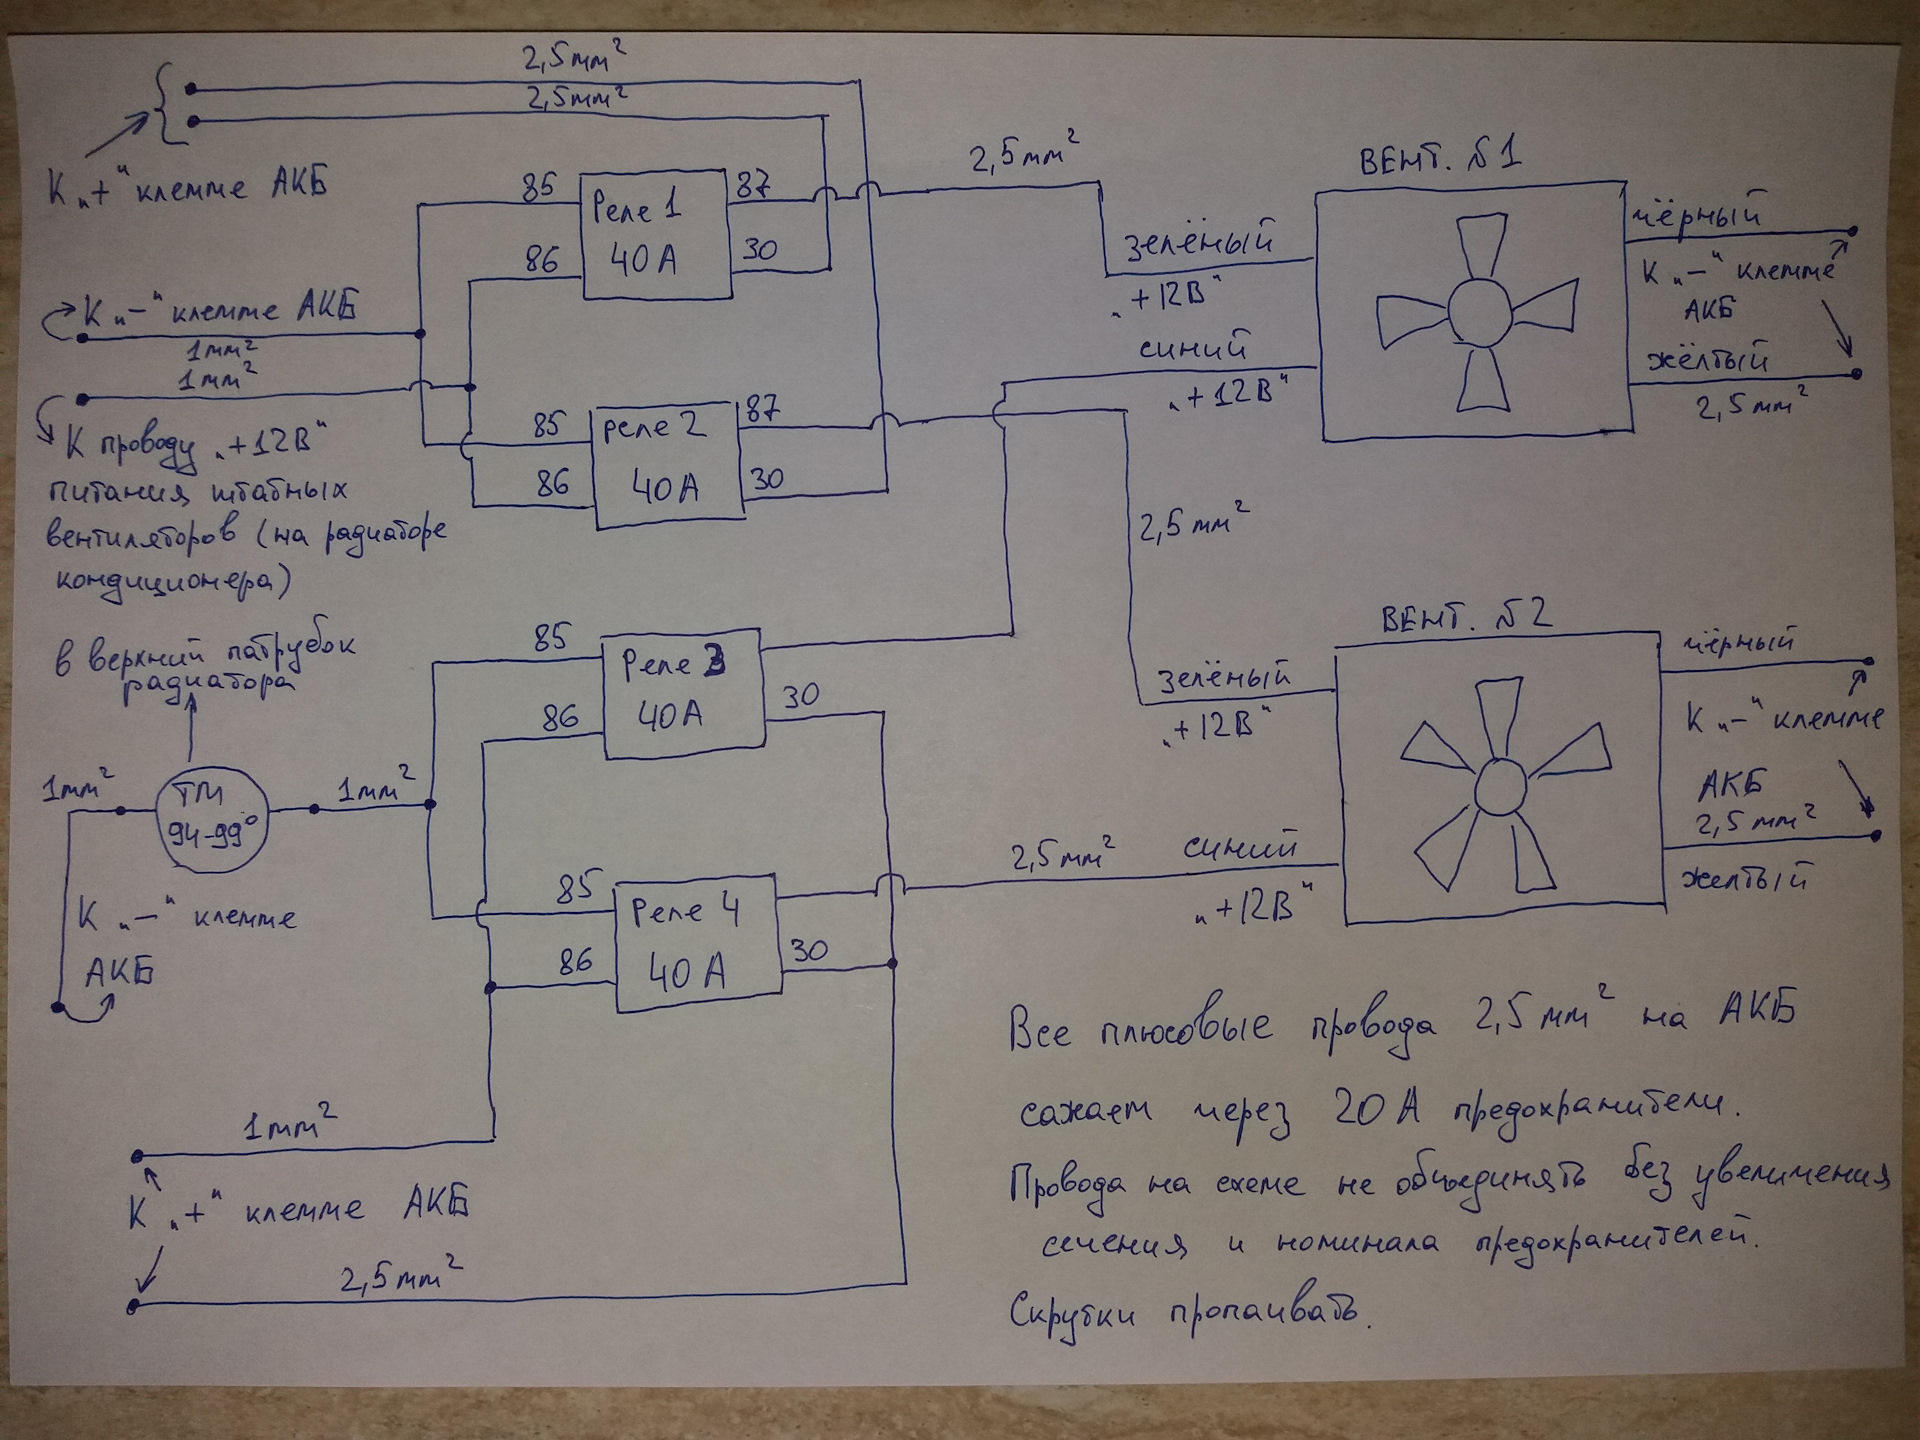 2,5мм²
2,5мм²
К „+" клемме АКБ
85
Реле 1
40А
87
86
30
2,5мм²
ВЕНТ. №1
чёрный
зелёный
„+12В"
К „–" клемме
АКБ
синий
„+12В"
жёлтый
2,5мм²
К „–" клемме АКБ
1мм²
1мм²
К проводу „+12В"
питания штатных
вентиляторов (на радиаторе
кондиционера)
85
Реле 2
40А
87
86
30
2,5мм²
в верхний патрубок
радиатора
85
Реле 3
40А
86
30
ВЕНТ. №2
чёрный
зелёный
„+12В"
К „–" клемме
АКБ
2,5мм²
желтый
1мм²
ТМ
94-99°
1мм²
К „–" клемме
АКБ
85
Реле 4
40А
86
30
2,5мм²
синий
„+12В"
1мм²
К „+" клемме АКБ
2,5мм²
Все плюсовые провода 2,5мм² на АКБ
сажаем через 20А предохранители.
Провода на схеме не объединять без увеличения
сечения и номинала предохранителей.
Скрутки пропаивать.